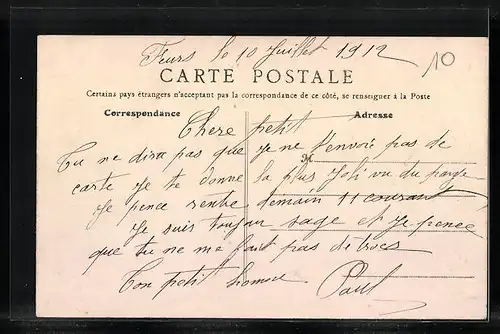 Feurs le 10 Juillet 1912
10
CARTE POSTALE
Certains pays étrangers n'acceptant pas la correspondance de ce côté, se renseigner à la Poste
Correspondance
Adresse
Chere petit
Tu ne dira pas que je ne t'envoi pas de
M
carte Je te donne la plus Joli vu du
Je pence rentre demain 11 courant
Je suis toujour sage et Je pence
que tu ne me fait pas de
Ton petit homme Paul